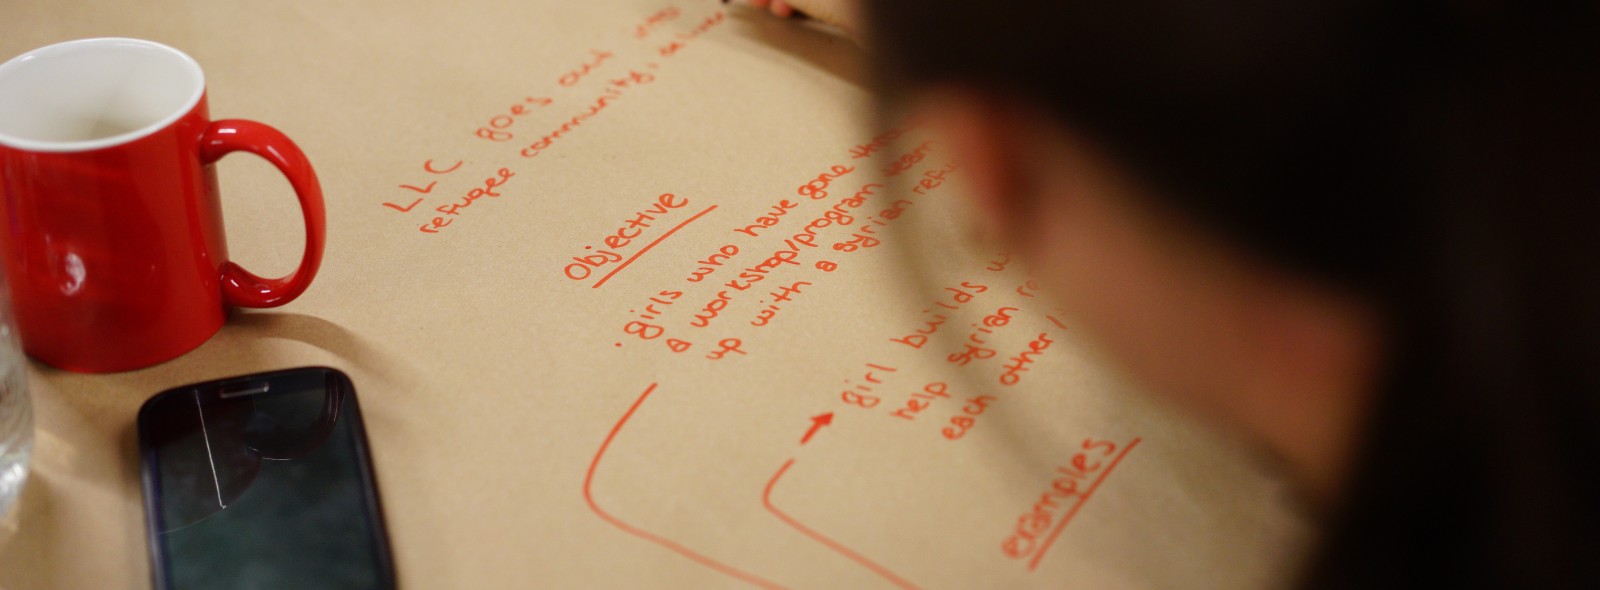 LLC goes out
refugee community,
Objective
· girls who have gone
a workshop/program team
up with a syrian
→ girl builds
help syrian
each other/
examples